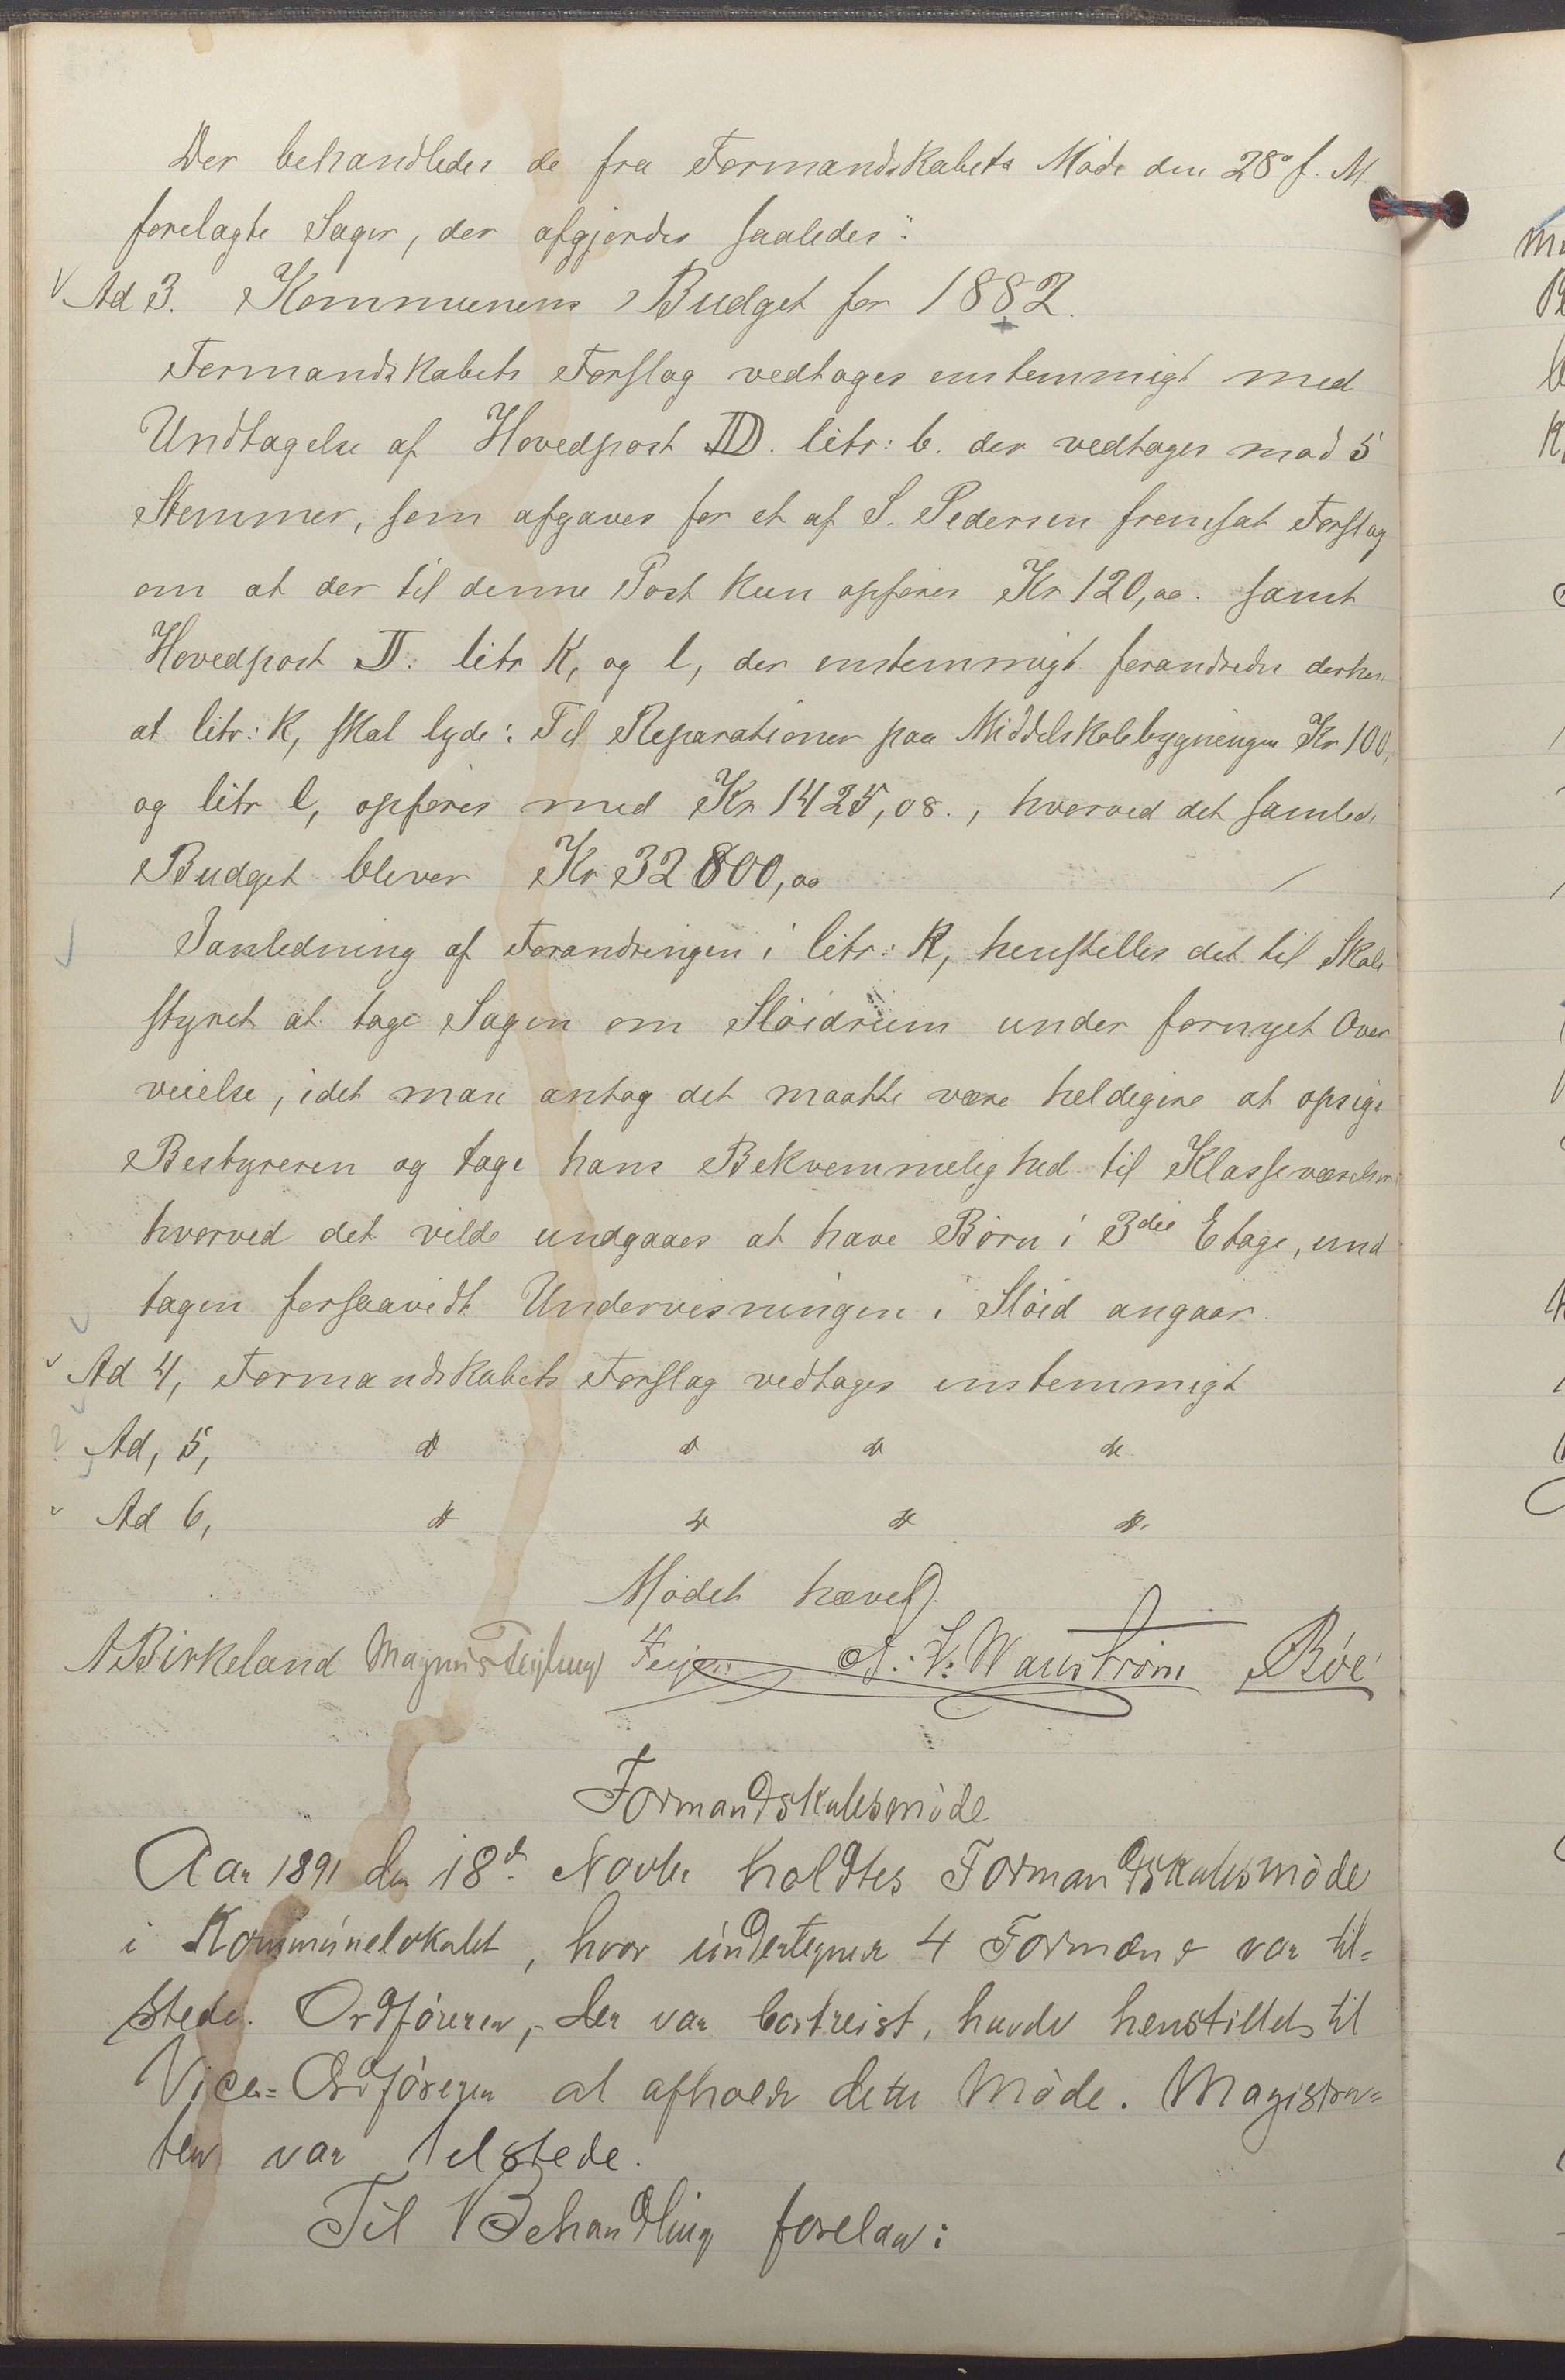 Der behandledes de fra Formandskabets Møde den 28° f. M.
forelagte Sager, der afgjordes saaledes:
Ad 3. Kommunens Budget for 1882.
Formandskabets Forslag vedtages enstemmigt med
Undtagelse af Hovedpost III. litr: b. der vedtages mod 5
Stemmer, som afgaves for et af S. Pedersen fremsat Forslag
om at der til denne Post kun opføres Kr 120,00. samt
Hovedpost II. litr K, og l, der enstemmigt forandredes derhen
at litr: K, skal lyde: Til Reparationer paa Middelskolebygningen Kr 100,
og litr l, opføres med Kr 1425,08., hvorved det samlede
Budget bliver Kr 32800,00
I anledning af Forandringen i litr: K, henstilles det til Skole
styret at tage Sagen om Sløidrum under fornyet Over
veielse, idet man antog det maatte være heldigere at opsige
Bestyreren og tage hans Bekvemmelighed til Klasseværelser
hvorved det vilde undgaaes at have Børn i 3die Etage, und
tagen forsaavidt Undervisningen i Sløid angaar.
Ad 4, Formandskabets Forslag vedtages enstemmigt
Ad, 5, do do do do
Ad 6, do do do do
Mødet hævet.
A Birkeland Magnus Feyling Feyer Wanstrøm Bøe
Formandskabsmøde
Aar 1891 den 18d. Novbr holdtes Formandskabsmøde
i Kommunelokalet, hvor undertegnede 4 Formænd var til=
stede. Ordføreren, der var bortreist, havde henstillet til
Vice=Ordføreren at afholde dette Møde. Magistra=
ten var tilstede.
Til Behandling forelaa: